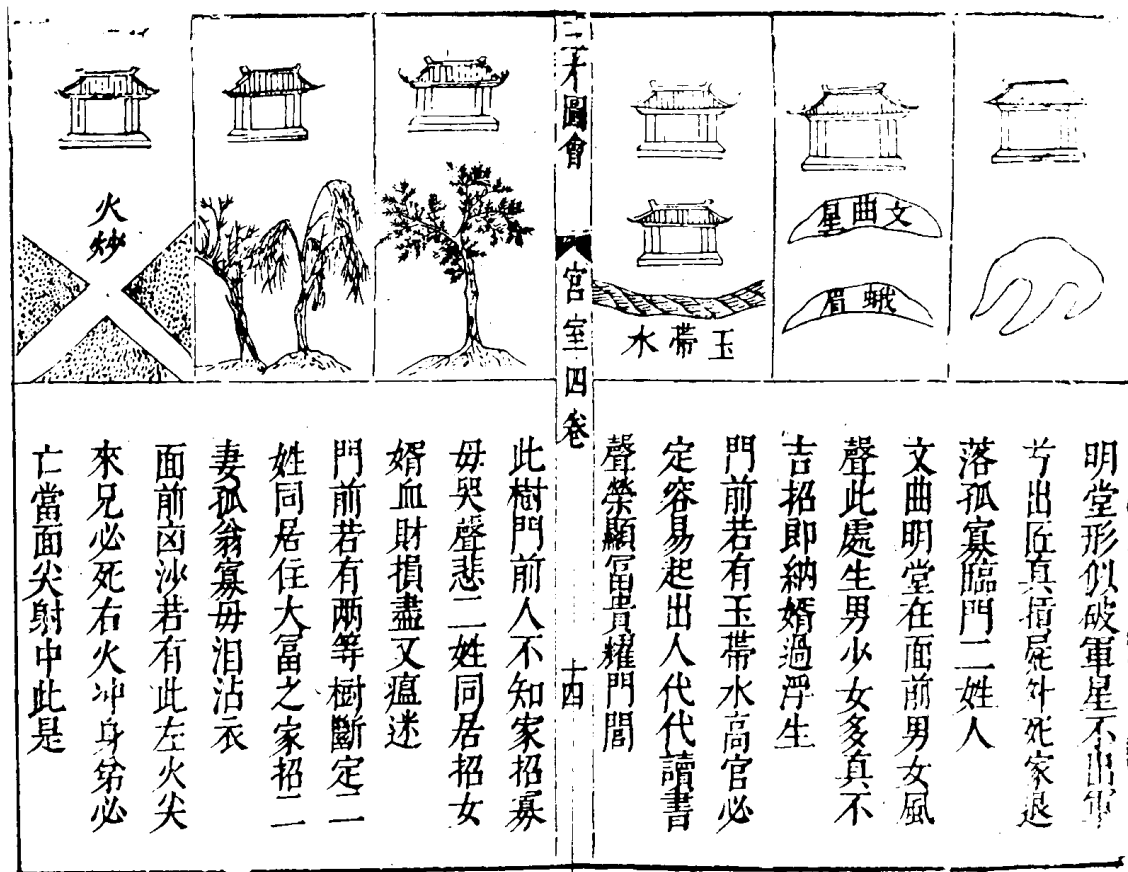 文曲星
蛾眉
玉帶水
明堂形似破軍星不出軍
兮出匠真屍外死家退
落孤寡臨門二姓人
文曲明堂在面前男女風
聲此處生男少女多真不
吉招即納婿過浮生
門前若有玉帶水高官必
定容易起出人代代讀書
聲榮顯冨貴耀門閭
三才圖會
宮室四卷
十四
火炒
此樹門前人不知家招寡
母哭聲悲二姓同居招女
婿血財損盡又瘟迷
門前若有两等樹斷定二
姓同居住大冨之家招二
妻孤翁寡母泪沾衣
面前凶沙若有此左火尖
來兄必死右火冲身弟必
亡當面尖射中此是